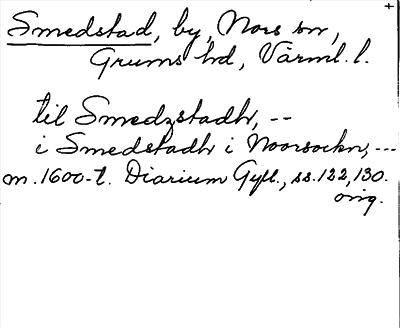 Smedstad, by, Nors sn,
Grums hd, Värml. l.
til Smedzstadh, --
i Smedstadh i Noorsockn, ---
m. 1600-t. Diarium Gyll., ss. 122, 130.
orig.